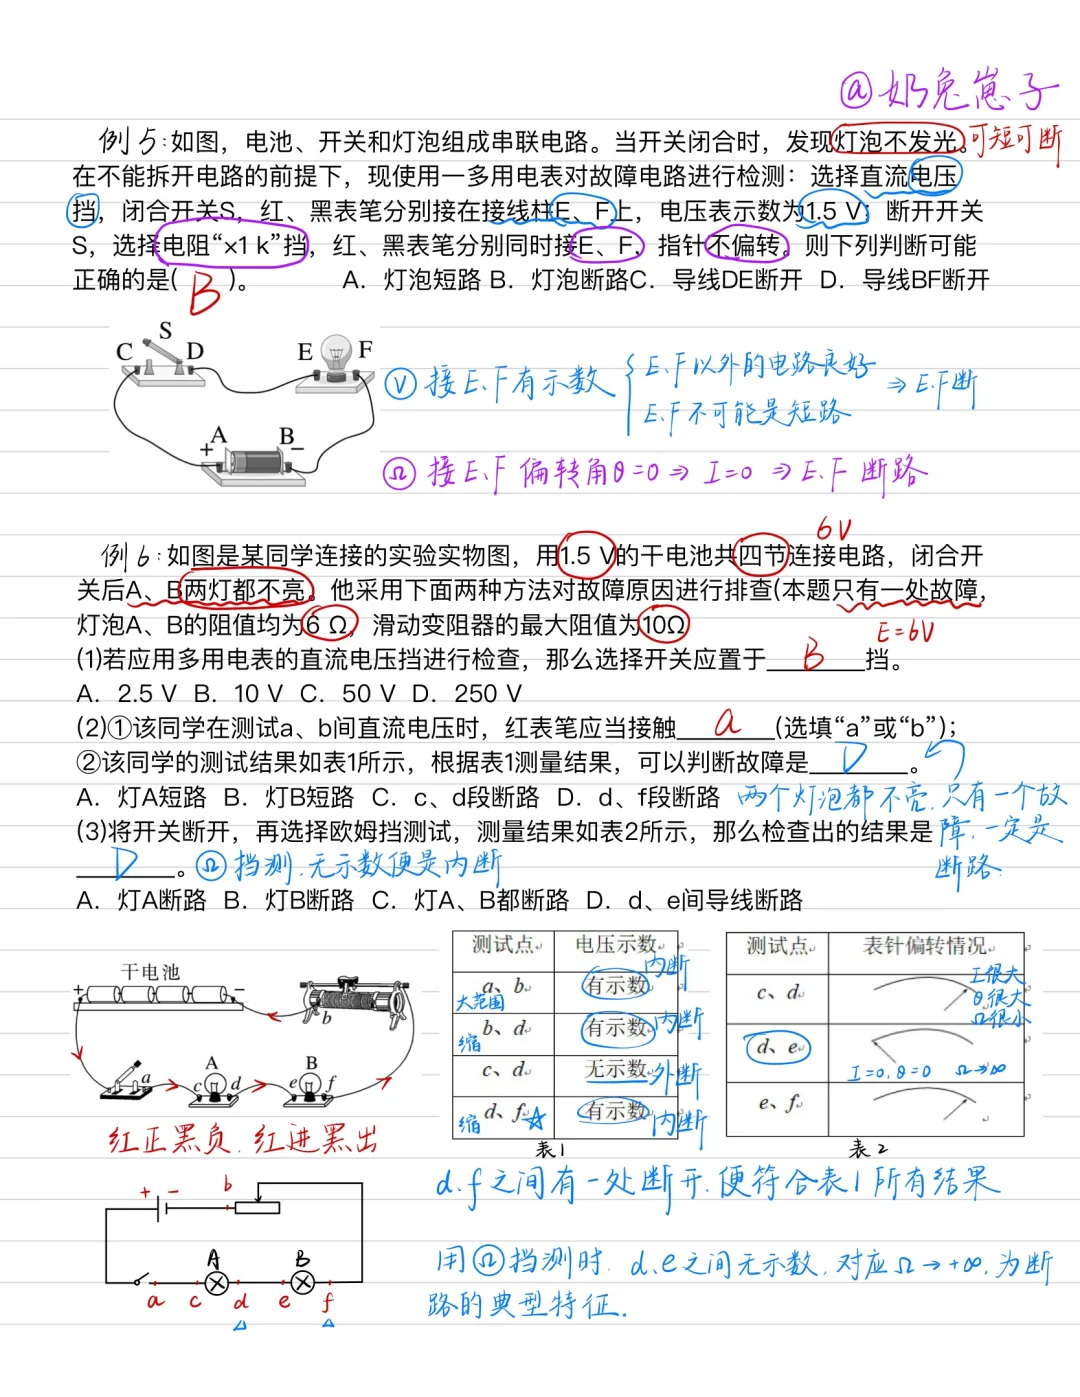 @奶兔崽子
例5:如图，电池、开关和灯泡组成串联电路。当开关闭合时，发现灯泡不发光。可短可断
在不能拆开电路的前提下，现使用一多用电表对故障电路进行检测：选择直流电压
挡，闭合开关S，红、黑表笔分别接在接线柱E、F上，电压表示数为1.5 V；断开开关
S，选择电阻“×1 k”挡，红、黑表笔分别同时接E、F，指针不偏转。则下列判断可能
正确的是( B )。 A．灯泡短路 B．灯泡断路C．导线DE断开 D．导线BF断开
S
C D E F
A B
+ −
Ⓥ接E、F有示数 { E、F以外的电路良好 ⇒ E、F断
E、F不可能是短路
Ⓩ接E、F 偏转角θ=0 ⇒ I=0 ⇒ E、F 断路
6V
例6:如图是某同学连接的实验实物图，用1.5 V的干电池共四节连接电路，闭合开
关后A、B两灯都不亮。他采用下面两种方法对故障原因进行排查(本题只有一处故障，
灯泡A、B的阻值均为6 Ω，滑动变阻器的最大阻值为10Ω
E=6V
(1)若应用多用电表的直流电压挡进行检查，那么选择开关应置于 B 挡。
A．2.5 V B．10 V C．50 V D．250 V
(2)①该同学在测试a、b间直流电压时，红表笔应当接触 a (选填“a”或“b”)；
②该同学的测试结果如表1所示，根据表1测量结果，可以判断故障是 D 。
A．灯A短路 B．灯B短路 C．c、d段断路 D．d、f段断路 两个灯泡都不亮，只有一个故
(3)将开关断开，再选择欧姆挡测试，测量结果如表2所示，那么检查出的结果是 障，一定是
D 。Ω挡测，无示数便是内断 断路.
A．灯A断路 B．灯B断路 C．灯A、B都断路 D．d、e间导线断路
干电池
+ −
b
A B
a c d e f
红正黑负，红进黑出
测试点 电压示数
a、b 有示数 内断
大范围
b、d 有示数 内断
缩
c、d 无示数 外断
d、f ☆ 有示数 内断
缩
表1
测试点 表针偏转情况
c、d I很大
θ很大
Ω很小
d、e I=0，θ=0 Ω→∞
e、f
表2
d、f之间有一处断开，便符合表1所有结果
+ − b
A B
a c d e f
用Ω挡测时，d、e之间无示数，对应Ω→+∞，为断
路的典型特征.